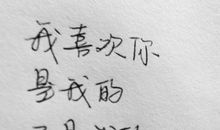 我喜欢你
是我的